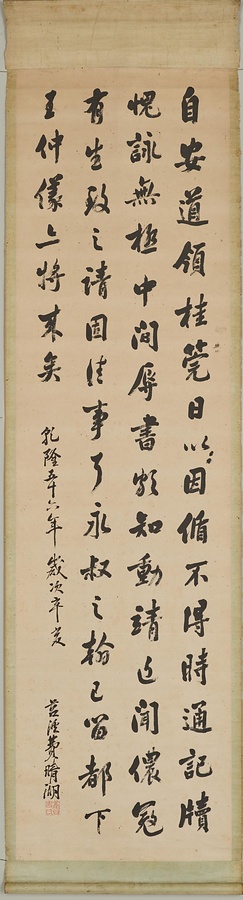 自安道領桂筦日以因循不得時通記牘
愧詠無極中間辱書頗知動靖近聞儂寇
有生致之請固佳事了永叔之翰已留都下
王仲儀亦將來矣
乾隆五十六年歲次辛亥
苕溪費晴湖